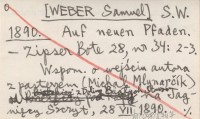 [WEBER Samuel] S.W.
1890. Auf neuen Pfaden.
— Zipser Bote 28, nr 34: 2-3,
Wspom. o wejściu autora
z pasterzem (Michał Mlynarčik)
na Jag-
nięcy Szczyt, 28 VII 1890.